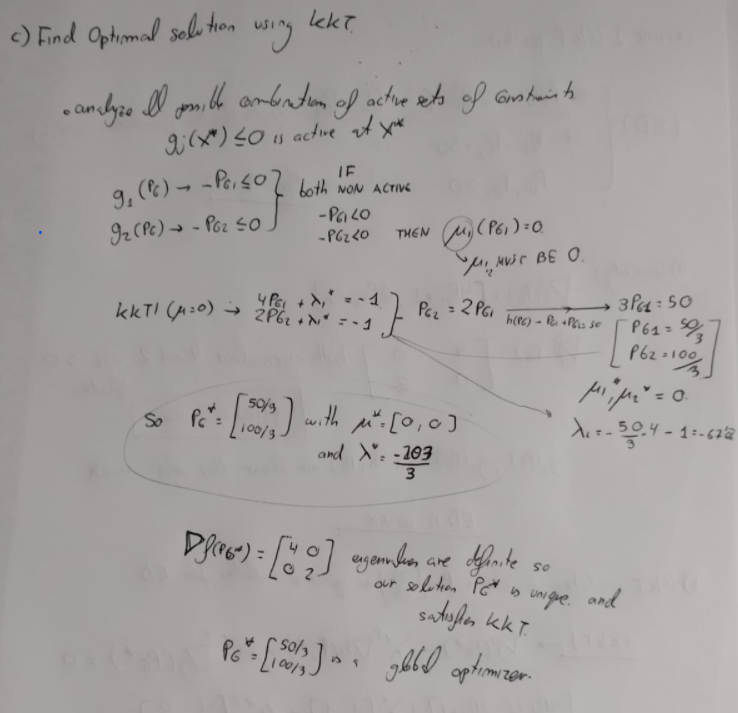 c) Find Optimal solution using KKT.
• analyze all possible combination of active sets of constraints
gj(x*) ≤ 0 is active at x*
g₁(PG) → -PG1 ≤ 0 } both NON ACTIVE
IF
g₂(PG) → -PG2 ≤ 0
-PG1 < 0
-PG2 < 0 THEN μ₁(PG1) = 0.
μ₁,₂ MUST BE 0.
KKT1 (μ=0) → 4PG1 + λ₁* = -1
2PG2 + λ₁* = -1 } PG2 = 2PG1 → 3PG1 = 50
h(PG) - PG1 + PG2 = 50
[ PG1 = 50/3
PG2 = 100/3 ]
μ₁*, μ₂* = 0.
λ₁ = - 50/3 · 4 - 1 =
So PG* = [50/3 100/3] with μ* = [0, 0]
and λ* = -203/3
∇f(PG*) = [4 0 0 2] eigenvalues are definite so
our solution PG* is unique. and
satisfies KKT.
PG* = [50/3 100/3] is a global optimizer.